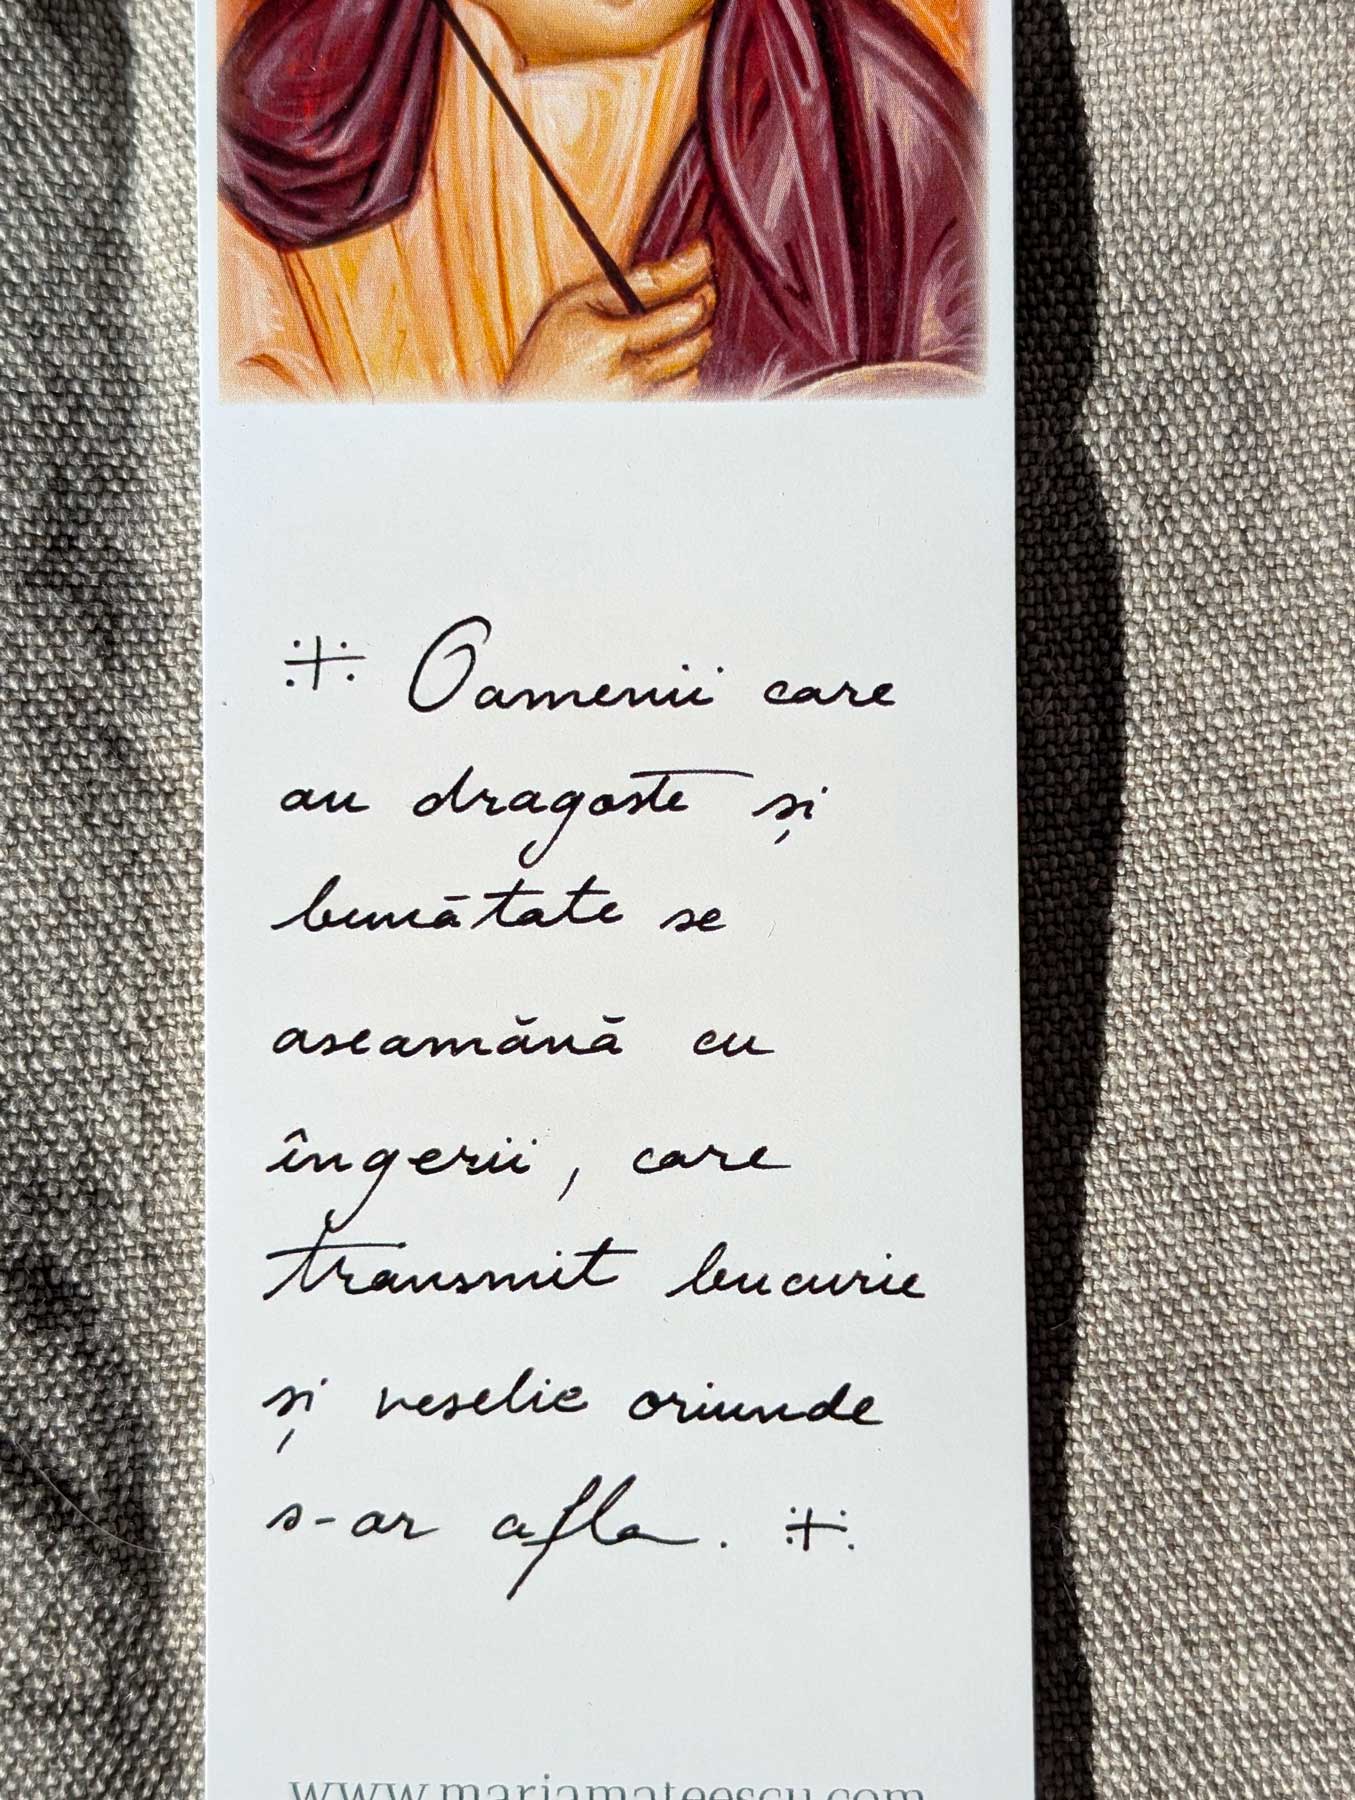 Oamenii care
au dragoste și
bunătate se
aseamănă cu
îngerii, care
transmit bucurie
și veselie oriunde
s-ar afla.
www.mariamateescu.com